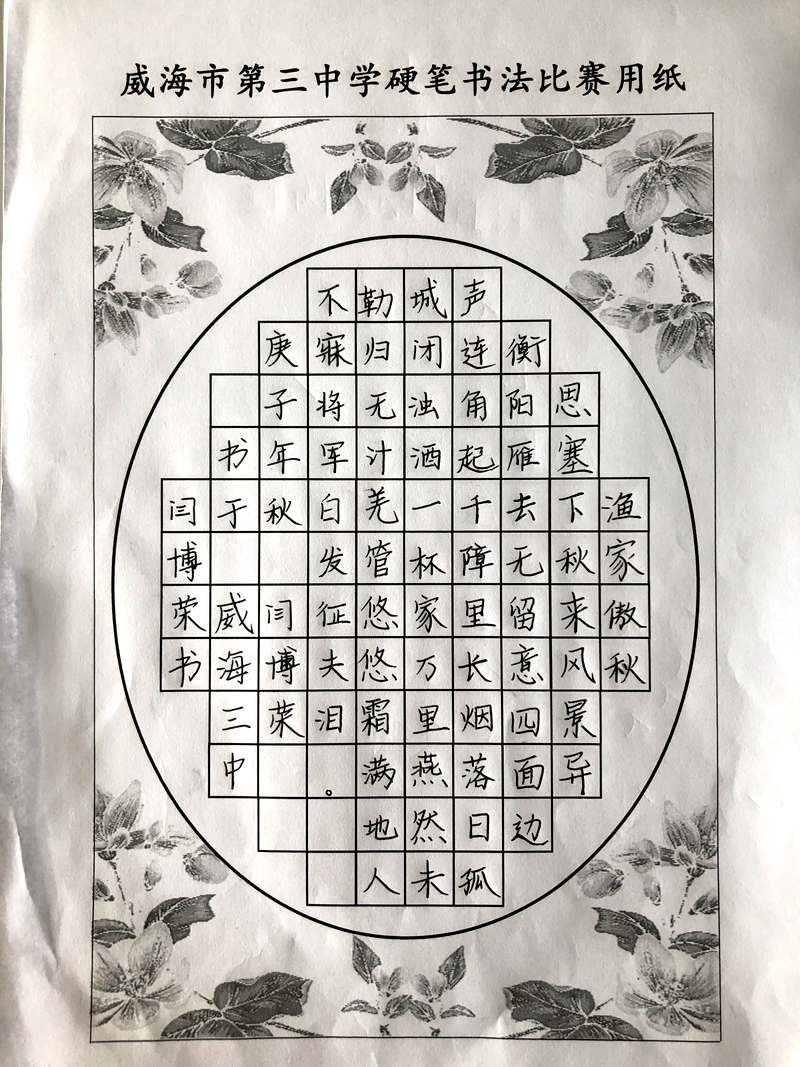 威海市第三中学硬笔书法比赛用纸
渔家傲秋
思塞下秋来风景异
衡阳雁去无留意四面边
声连角起千障里长烟落日孤
城闭浊酒一杯家万里燕然未
勒归无计羌管悠悠霜满地人
不寐将军白发征夫泪。
庚子年秋 闫博荣
书于 威海三中
闫博荣书